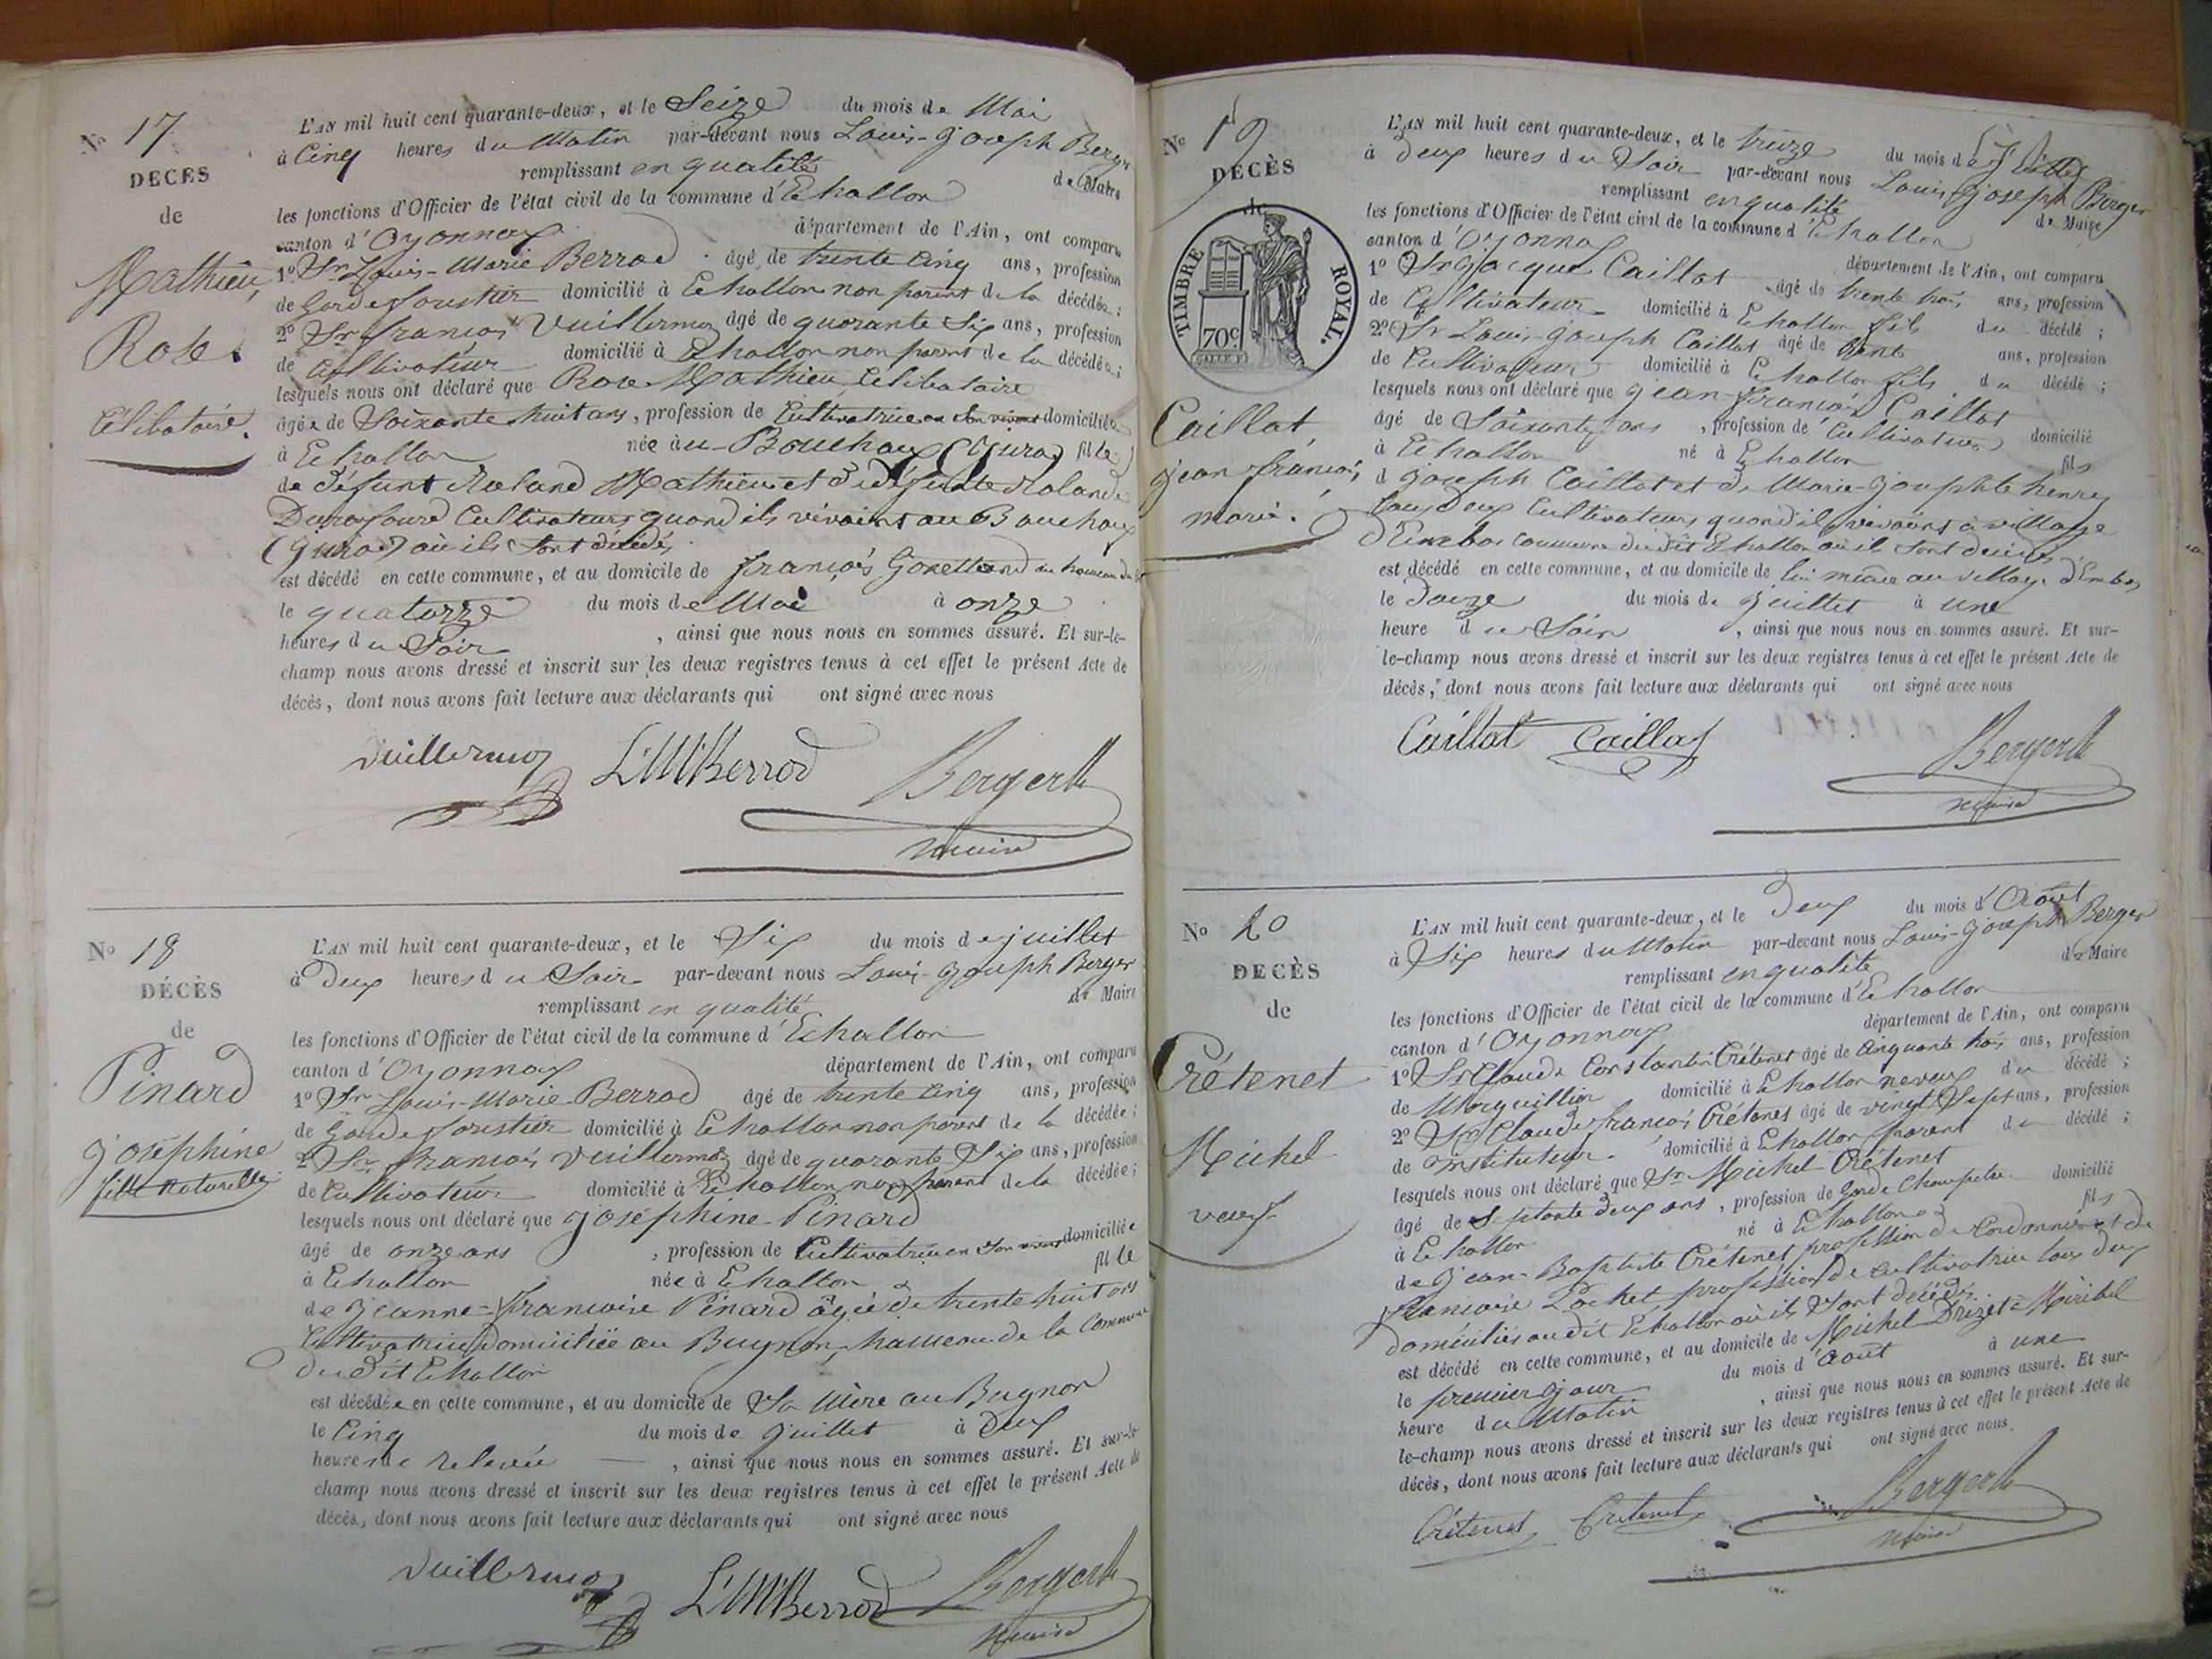 No 17
DECES
de
Mathieu,
Rose.
Célibataire.
L'AN mil huit cent quarante-deux, et le Seize du mois de Mai
à Cinq heures du Matin par-devant nous Louis-Joseph Berger
remplissant en qualité de Maire
les fonctions d'Officier de l'état civil de la commune d'Echallon
canton d'Oyonnax département de l'Ain, ont comparu
1º Sr Louis-Marie Berrod âgé de trente cinq ans, profession
de Garde forestier domicilié à Echallon non parent de la décédée;
2º Sr françois Vuillermoz âgé de quarante Six ans, profession
de Cultivateur domicilié à Echallon non parent de la décédée;
lesquels nous ont déclaré que Rose Mathieu Célibataire
âgée de Soixante huit ans, profession de Cultivatrice en Son vivant domiciliée
à Echallon née au Bouchoux (Jura) fille
de défunt Roland Mathieu et de défunte Rolande
Cultivateurs quand ils vivaient au Bouchoux
(Jura) où ils Sont décédés
est décédé en cette commune, et au domicile de françois
le quatorze du mois de Mai à onze
heures du Soir , ainsi que nous nous en sommes assuré. Et sur-le-
champ nous avons dressé et inscrit sur les deux registres tenus à cet effet le présent Acte de
décès, dont nous avons fait lecture aux déclarants qui ont signé avec nous
Vuillermoz L M Berrod Berger
maire
No 18
DÉCÈS
de
Pinard
joséphine
fille naturelle
L'AN mil huit cent quarante-deux, et le Six du mois de juillet
à Deux heures du Soir par-devant nous Louis-Joseph Berger
remplissant en qualité de Maire
les fonctions d'Officier de l'état civil de la commune d'Echallon
canton d'Oyonnax département de l'Ain, ont comparu
1º Sr Louis-Marie Berrod âgé de trente cinq ans, profession
de Garde forestier domicilié à Echallon non parent de la décédée;
2º Sr françois Vuillermoz âgé de quarante Six ans, profession
de Cultivateur domicilié à Echallon non parent de la décédée;
lesquels nous ont déclaré que joséphine Pinard
âgé de onze ans , profession de Cultivatrice en Son vivant domiciliée
à Echallon née à Echallon fille
de Jeanne-françoise Pinard âgée de trente huit ans
Cultivatrice domiciliée au Bugnon, hameau de la Commune
du dit Echallon
est décédée en cette commune, et au domicile de Sa Mère au Bugnon
le Cinq du mois de juillet à Deux
heures de relevée , ainsi que nous nous en sommes assuré. Et sur-le-
champ nous avons dressé et inscrit sur les deux registres tenus à cet effet le présent Acte de
décès, dont nous avons fait lecture aux déclarants qui ont signé avec nous
Vuillermoz L M Berrod Berger
maire
No 19
DÉCÈS
de
TIMBRE ROYAL.
70c.
Caillat,
jean françois,
marié.
L'AN mil huit cent quarante-deux, et le treize du mois de Juillet
à Deux heures du Soir par-devant nous Louis-Joseph Berger
remplissant en qualité de Maire
les fonctions d'Officier de l'état civil de la commune d'Echallon
canton d'Oyonnax département de l'Ain, ont comparu
1º Sr Jacques Caillat âgé de trente trois ans, profession
de Cultivateur domicilié à Echallon fils du décédé;
2º Sr Louis-Joseph Caillat âgé de trente ans, profession
de Cultivateur domicilié à Echallon fils du décédé;
lesquels nous ont déclaré que jean-françois Caillat
âgé de Soixante ans , profession de Cultivateur domicilié
à Echallon né à Echallon fils
d joseph Caillat et de Marie-Josephte henry
tous deux Cultivateurs quand ils vivaient à village
d'Emebos Commune du dit Echallon où ils Sont décédés
est décédé en cette commune, et au domicile de lui même au village
le Douze du mois de juillet à une
heure du Soir , ainsi que nous nous en sommes assuré. Et sur-
le-champ nous avons dressé et inscrit sur les deux registres tenus à cet effet le présent Acte de
décès, dont nous avons fait lecture aux déclarants qui ont signé avec nous
Caillat Caillat Berger
maire
No 20
DECÈS
de
Crétenet
Michel
veuf
L'AN mil huit cent quarante-deux, et le Deux du mois d'Août
à Six heures du Matin par-devant nous Louis-Joseph Berger
remplissant en qualité de Maire
les fonctions d'Officier de l'état civil de la commune d'Echallon
canton d'Oyonnax département de l'Ain, ont comparu
1º Sr Claude Constantin Crétenet âgé de Cinquante trois ans, profession
de Marguillier domicilié à Echallon neveux du décédé;
2º Sr Claude françois Crétenet âgé de vingt Sept ans, profession
de instituteur domicilié à Echallon parent du décédé;
lesquels nous ont déclaré que Sr Michel Crétenet
âgé de Septante deux ans , profession de Garde Champêtre domicilié
à Echallon né à Echallon fils
de Jean-Baptiste Crétenet profession de Cordonnier et de
françoise Pochet profession de cultivatrice tous deux
domiciliés au dit Echallon où ils Sont décédés
est décédé en cette commune, et au domicile de Michel Drizet à Miribel
le premier jour du mois d'Août à une
heure du Matin , ainsi que nous nous en sommes assuré. Et sur-
le-champ nous avons dressé et inscrit sur les deux registres tenus à cet effet le présent Acte de
décès, dont nous avons fait lecture aux déclarants qui ont signé avec nous.
Crétenet Crétenet Berger
maire